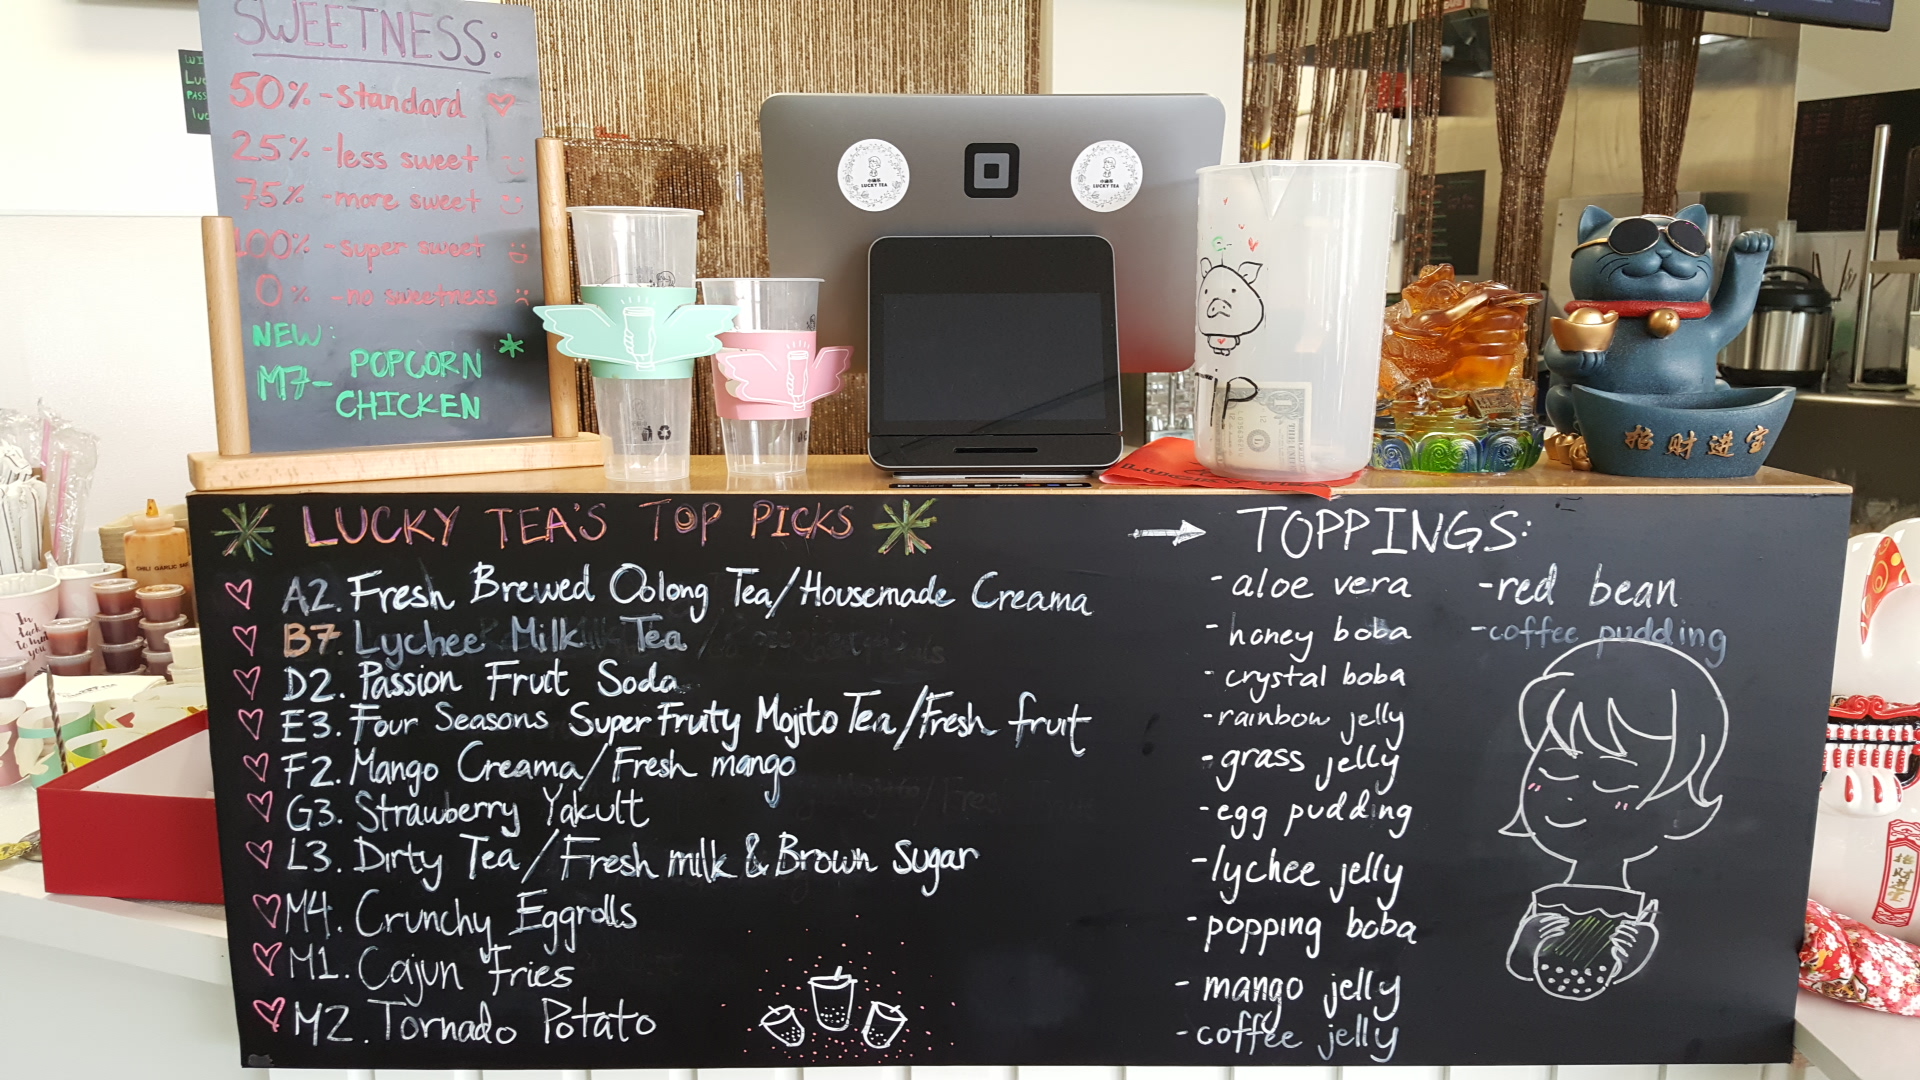 SWEETNESS:
50% - standard
25% - less sweet
75% - more sweet
100% - super sweet
0% - no sweetness
NEW:
M7- POPCORN
CHICKEN
LUCKY TEA
LUCKY TEA
TIP
招财进宝
CHILI GARLIC
LUCKY TEA'S TOP PICKS
A2. Fresh Brewed Oolong Tea/Housemade Creama
B7. Lychee Milk Tea
D2. Passion Fruit Soda
E3. Four Seasons Super Fruity Mojito Tea/Fresh fruit
F2. Mango Creama/Fresh mango
G3. Strawberry Yakult
L3. Dirty Tea/Fresh milk & Brown Sugar
M4. Crunchy Eggrolls
M1. Cajun Fries
M2. Tornado Potato
TOPPINGS:
-aloe vera
-honey boba
-crystal boba
-rainbow jelly
-grass jelly
-egg pudding
-lychee jelly
-popping boba
-mango jelly
-coffee jelly
-red bean
-coffee pudding